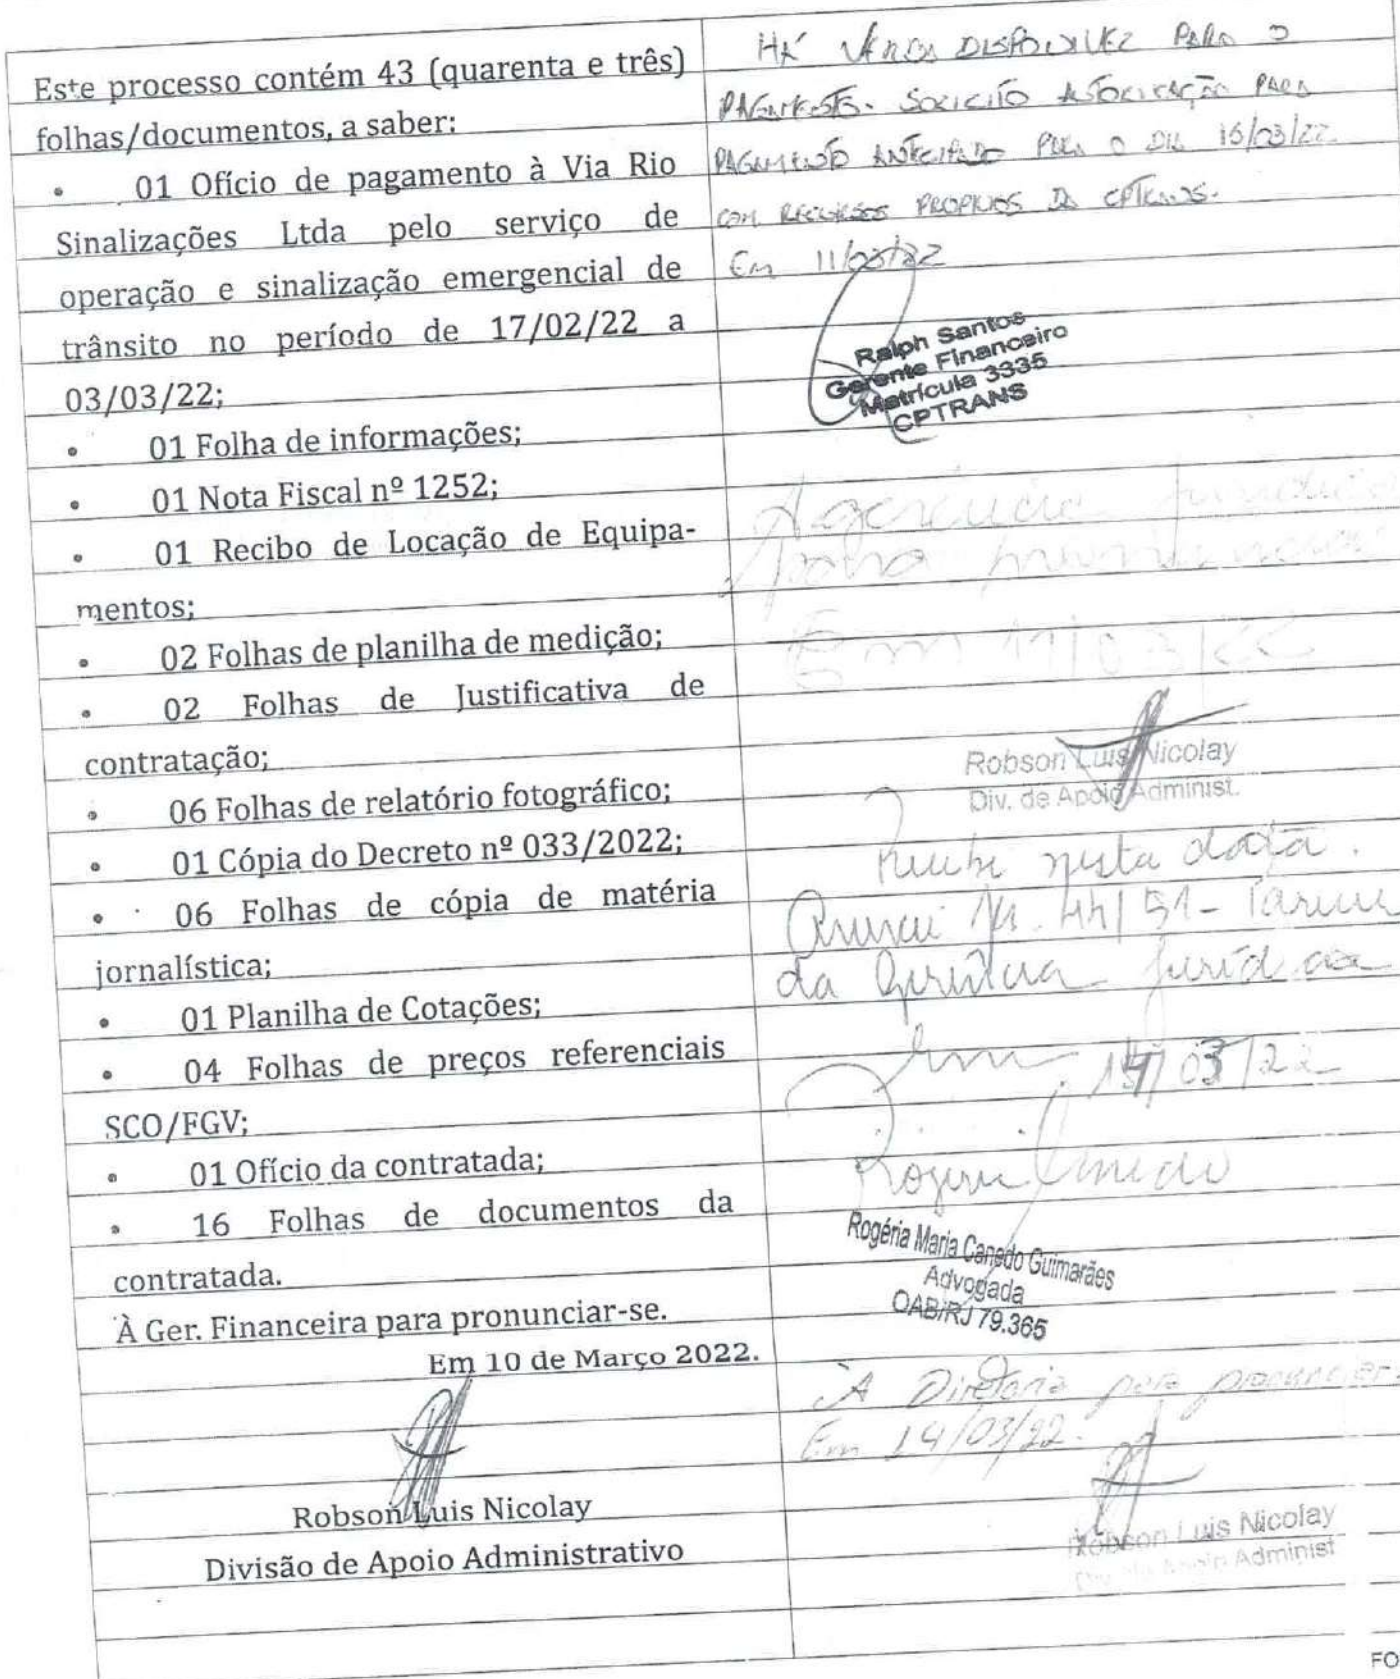 Este processo contém 43 (quarenta e três)
folhas/documentos, a saber:
• 01 Ofício de pagamento à Via Rio
Sinalizações Ltda pelo serviço de
operação e sinalização emergencial de
trânsito no período de 17/02/22 a
03/03/22;
• 01 Folha de informações;
• 01 Nota Fiscal nº 1252;
• 01 Recibo de Locação de Equipa-
mentos;
• 02 Folhas de planilha de medição;
• 02 Folhas de Justificativa de
contratação;
• 06 Folhas de relatório fotográfico;
• 01 Cópia do Decreto nº 033/2022;
• 06 Folhas de cópia de matéria
jornalística;
• 01 Planilha de Cotações;
• 04 Folhas de preços referenciais
SCO/FGV;
• 01 Ofício da contratada;
• 16 Folhas de documentos da
contratada.
À Ger. Financeira para pronunciar-se.
Em 10 de Março 2022.
Robson Luis Nicolay
Divisão de Apoio Administrativo
HÁ VERBA DISPONIVEL PARA O
PAGAMENTO. SOLICITO AUTORIZAÇÃO PARA
PAGAMENTO ANTECIPADO PARA O DIA 15/03/22
COM RECURSOS PROPRIOS DA CPTRANS.
Em 11/03/22
Ralph Santos
Gerente Financeiro
Matrícula 3335
CPTRANS
A gerência jurídica
para
Em 11/03/22
Robson Luis Nicolay
Div. de Apoio Administ.
Recebi nesta data.
Anexei 44/51 - Parecer
da Gerência Jurídica
Em 14/03/22
Rogéria Canedo
Rogéria Maria Canedo Guimarães
Advogada
OAB/RJ 79.365
À Diretoria para pronunciar-
Em 14/03/22.
Robson Luis Nicolay
Div. de Apoio Administ
FO